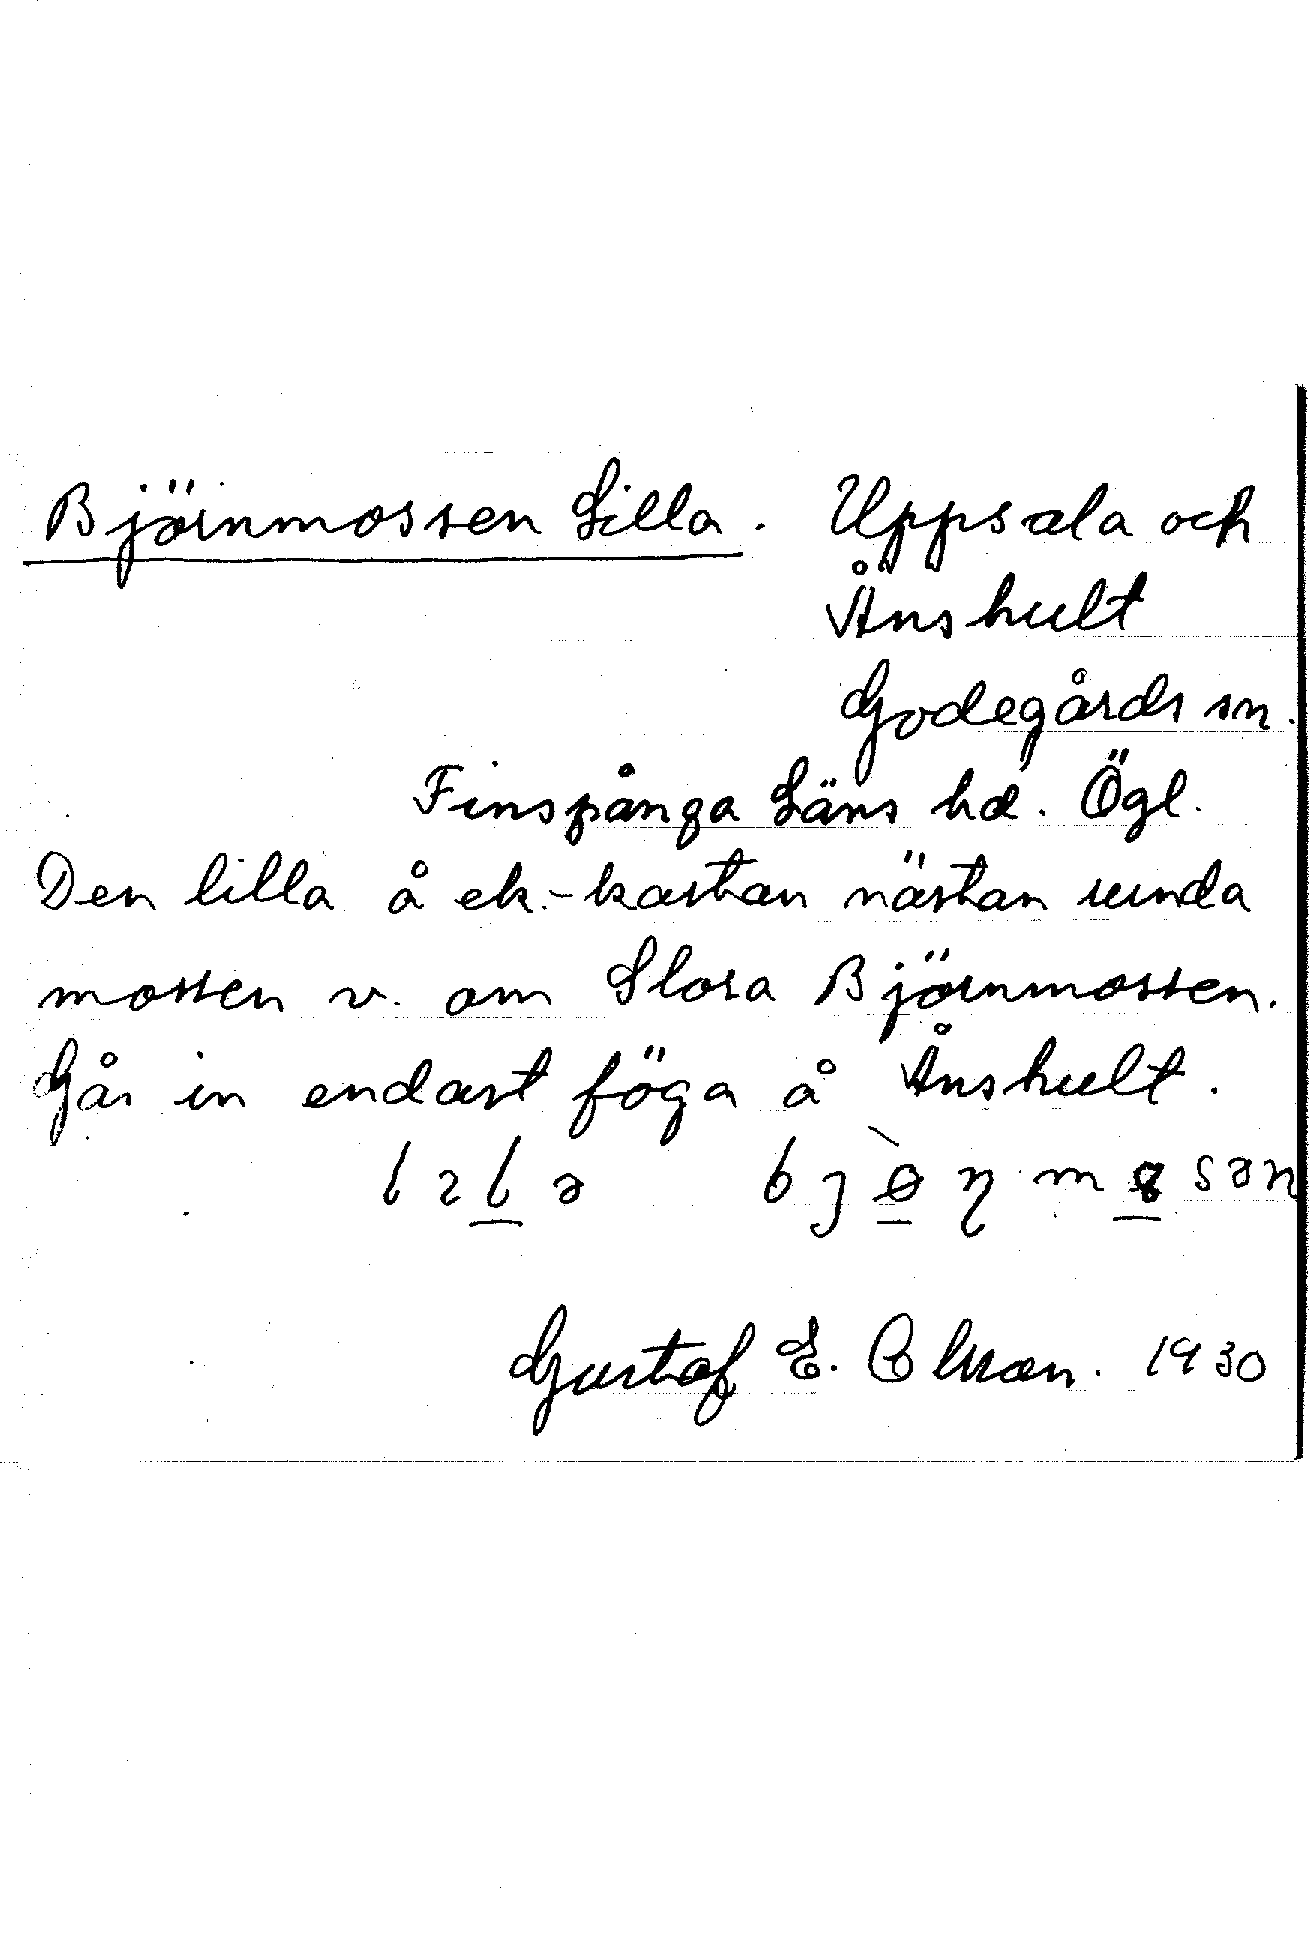 Björnmossen Lilla. Uppsala och
Ånshult
Godegårds sn.
Finspånga Läns hd. Ögl.
Den lilla å ek.-kartan nästan runda
mossen v. om Stora Björnmossen.
Går in endast föga å Ånshult.
Gustaf E. Olsson. 1930